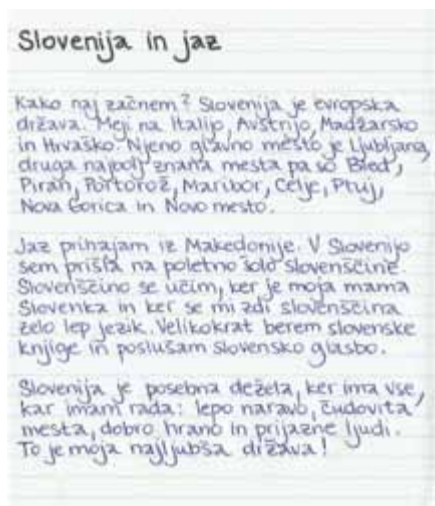 Slovenija in jaz
Kako naj začnem? Slovenija je evropska
država. Meji na Italijo, Avstrijo, Madžarsko
in Hrvaško. Njeno glavno mesto je Ljubljana,
druga najbolj znana mesta pa so Bled,
Piran, Portorož, Maribor, Celje, Ptuj,
Nova Gorica in Novo mesto.
Jaz prihajam iz Makedonije. V Slovenijo
sem prišla na poletno šolo slovenščine.
Slovenščino se učim, ker je moja mama
Slovenka in ker se mi zdi slovenščina
zelo lep jezik. Velikokrat berem slovenske
knjige in poslušam slovensko glasbo.
Slovenija je posebna dežela, ker ima vse,
kar imam rada: lepo naravo, čudovita
mesta, dobro hrano in prijazne ljudi.
To je moja najljubša država!